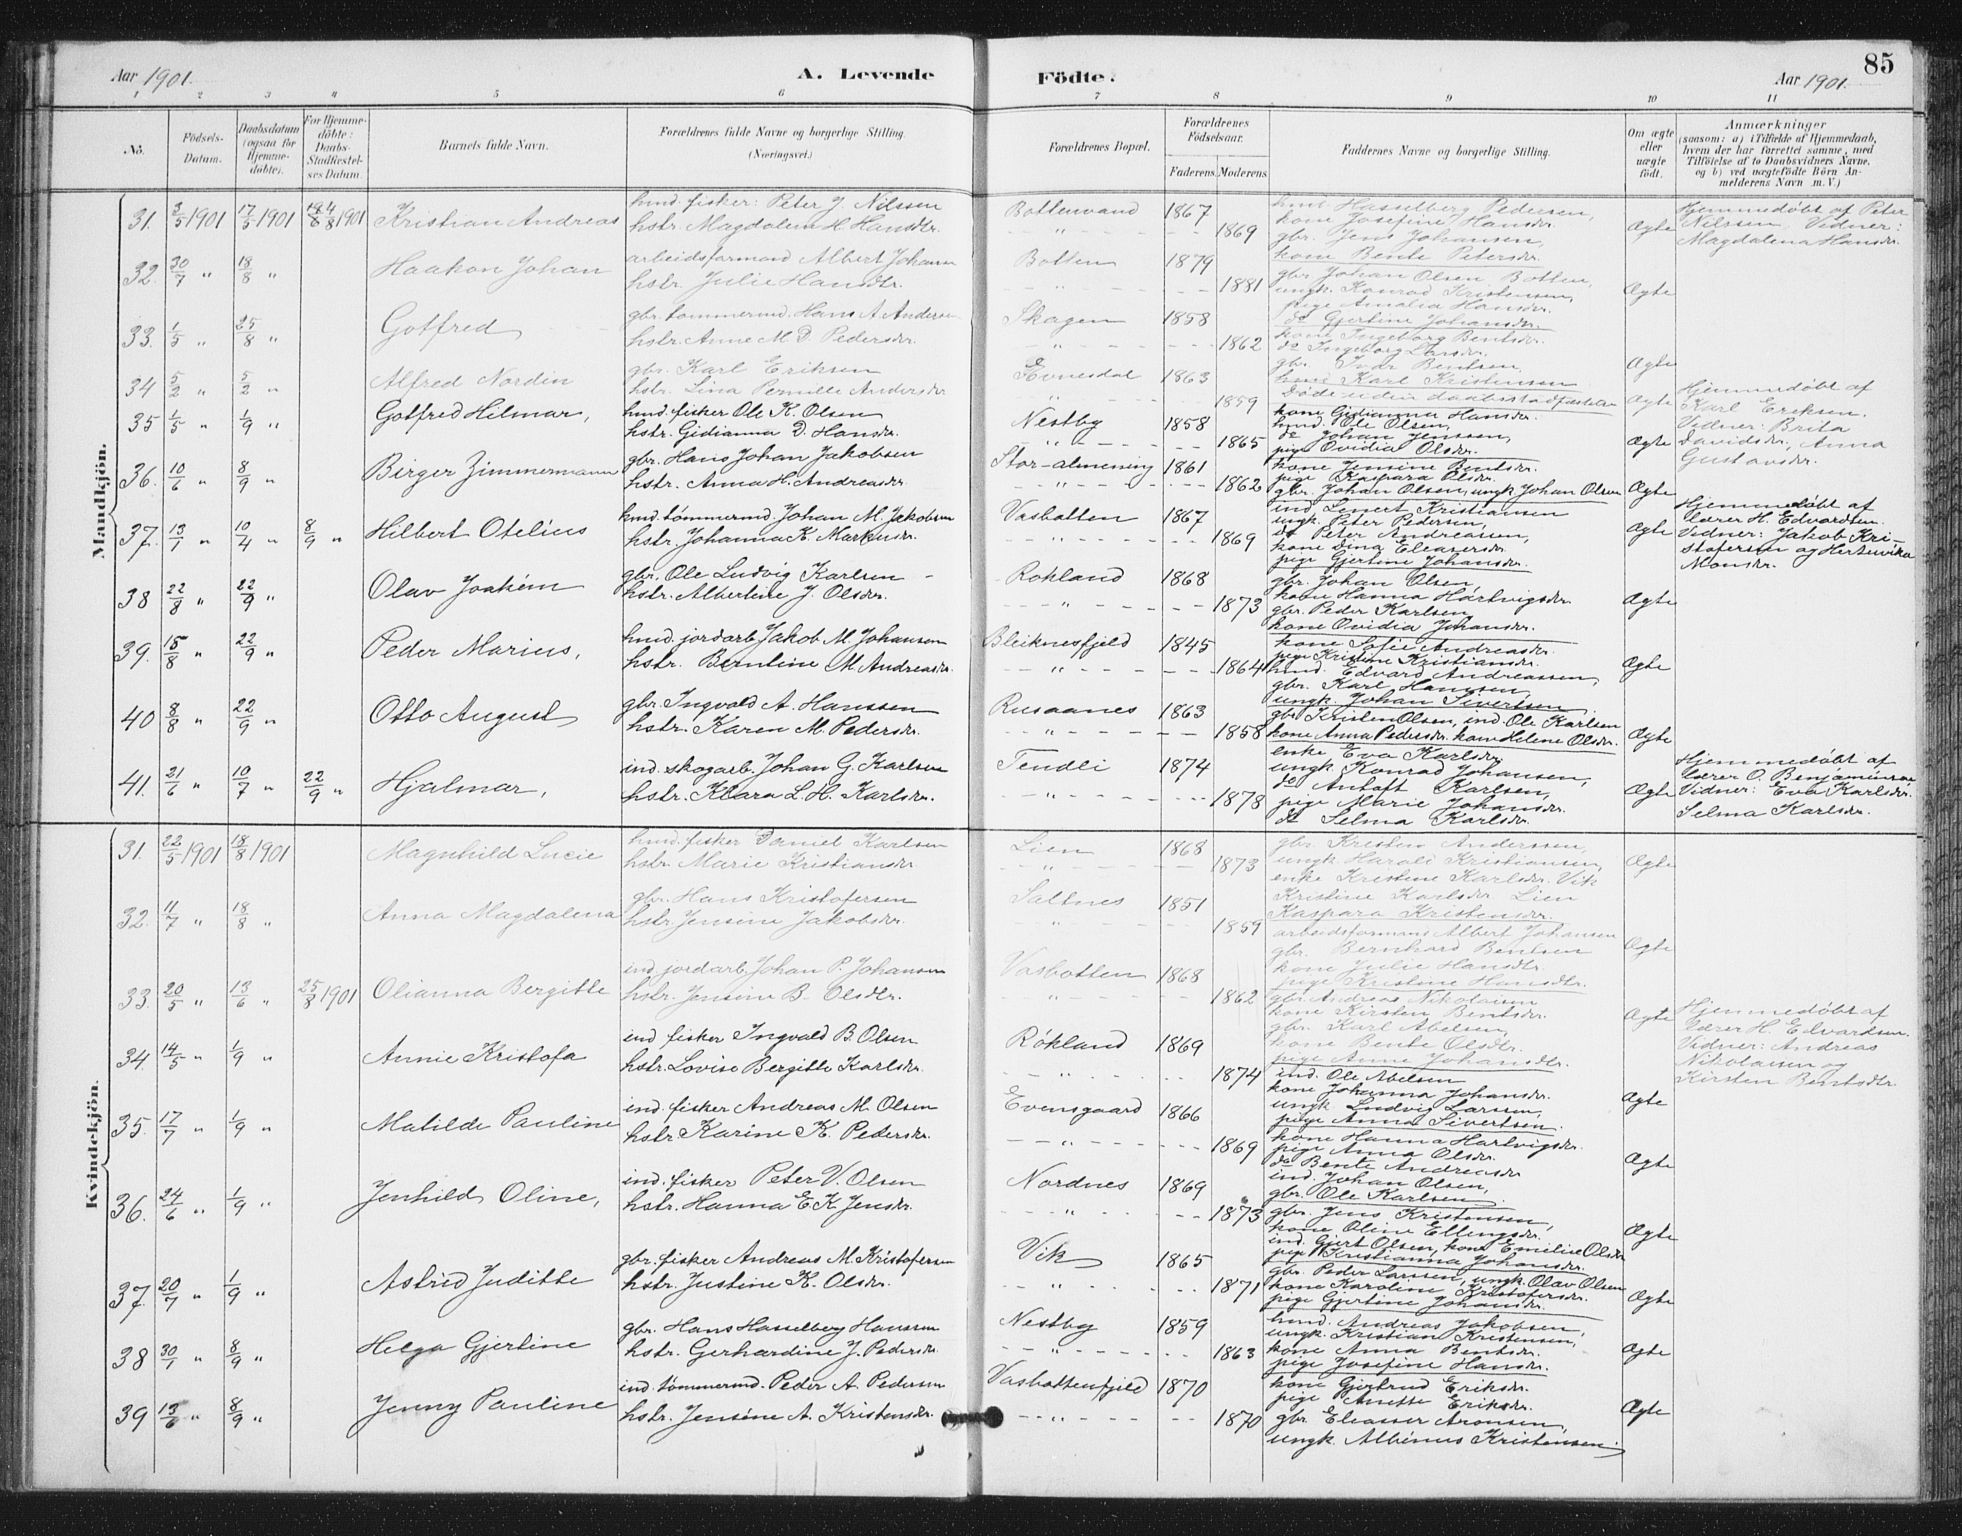 Aar 1901. A. Levende
Födte. Aar 1901. 85
1 2 3 4 5 6 7 8 9 10 11
No. Födsels-Datum. Daabsdatum (ogsaa for Hjemme-döbte). For Hjemme-döbte: Daabs-Stadfæstel-ses Datum. Barnets fulde Navn. Forældrenes fulde Navne og borgerlige Stilling. (Næringsvei.) Forældrenes Bopæl. Forældrenes Födselsaar. Faderens. Moderens. Faddernes Navne og borgerlige Stilling. Om ægte eller uægte födt. Anmærkninger (saasom: a) i Tilfælde af Hjemmedaab, hvem der har forrettet samme, med Tilföielse af to Daabsvidners Navne, og b) ved uægtefödte Börn Anmelderens Navn m. V.)
Mandkjön.
31. 3/5 1901 17/5 1901 18/8 1901 Kristian Andreas
hmd. fisker: Peter J. Nilssen
hstr. Magdalena M. Hansdtr.
Bottenvand 1867
1869
hmd. Hasselberg Pedersen,
kone Josefine Hansdr.
gbr. Jens Johansen,
kone Bente Petersdr.
Ægte
Hjemmedøbt af Peter
Nilssen. Vidner:
Magdalena Hansdr.
32. 30/7 " 18/8 " Haakon Johan
arbeidsformand Albert Johansen
hstr. Julie Hansdtr.
Botten 1879
1881
gbr. Johan Olsen Botten,
ungk. Konrad Kristensen,
pige Amalia Hansdr.
do Gjertine Johansdr.
Ægte
33. 1/5 " 25/8 " Gotfred
gbr. tømmermd. Hans A. Andersen
hstr. Anne M. D. Pedersdr.
Skagen 1858
1862
kone Ingeborg Bentsdr.
do Ingeborg Larsdr.
gbr. Indr. Bentsen,
hmd. Karl Kristensen
Ægte
34 5/2 " 5/2 " Alfred Nordin
gbr. Karl Eriksen
hstr. Lina Pernille Andersdr.
Evnesdal 1863
1859
Døde uden daabsstadfæstelse
Ægte
Hjemmedøbt af
Karl Eriksen.
Vidner: Brita
Davidsdr., Anna
Gustavsdr.
35 1/5 " 1/9 " Gotfred Hilmar,
hmd. fisker Ole K. Olsen
hstr. Gidianna D. Hansdr.
Nestby 1858
1865
kone Gidianna Hansdr.
hmd. Ole Olsen,
do Johan Jenssen,
pige Ovidia Olsdr.
Ægte
36. 10/6 " 8/9 " Birger Zimmermann
gbr. Hans Johan Jakobsen
hstr. Anna H. Andreasdr.
Stor-almening 1861
1862
kone Jensine Bentsdr.
pige Kaspara Olsdr.
gbr. Johan Olsen, ungk Johan Olsen
Ægte
37. 13/1 " 10/4 " 8/9 " Hilbert Otelius
hmd. tømmermd. Johan M. Jakobsen
hstr. Johanna K. Markusdr.
Vasbotten 1867
1869
ind. Lenert Kristiansen
ungk. Peter Pedersen,
do Peter Andreassen,
kone Dina Eleasersdr.
pige Gjertine Johansdr.
Ægte
Hjemmedøbt af
lærer H. Edvardsen.
Vidner: Jakob Kri-
stofersen og Hertenvika
Monsdr.
38 22/8 " 22/9 " Olav Joakim
gbr. Ole Ludvig Karlsen
hstr. Albertine J. Olsdr.
Rokland 1868
1873
gbr. Johan Olsen,
kone Hanna Hartvigsdr.
gbr. Peder Karlsen,
kone Ovidia Johansdr.
Ægte
39. 15/8 " 22/9 " Peder Marius,
hmd. jordarb. Jakob M. Johansen
hstr. Berntine M. Andreasdr.
Bleiknesfjeld 1845
1864
kone Sofie Andreasdr.
pige Kristine Kristiansdr.
hmd. Edvard Andreassen,
gbr. Karl Hanssen,
ungk. Johan Sivertsen.
Ægte
40 8/8 " 22/9 " Otto August
gbr. Ingvald A. Hanssen
hstr. Karen M. Pedersdr.
Rusaanes 1863
1858
gbr Kristen Olsen, ind. Ole Karlsen
kone Anna Pedersdr. kone Helene Olsdr.
Ægte
41. 21/6 " 10/7 " 22/9 " Hjalmar,
ind. skogarb. Johan G. Karlsen
hstr. Klara L. H. Karlsdr.
Tendli 1874
1878
enke Eva Karlsdr,
ungk. Konrad Johansen,
do Antoft Karlsen,
pige Marie Johansdr.
do Selma Karlsdr.
Ægte
Hjemmedøbt af
lærer O. Benjaminsen
Vidner: Eva Karlsdr.
Selma Karlsdr.
Kvindekjön.
31. 22/5 1901 18/8 1901 Magnhild Lucie
hmd. fisker Daniel Karlsen
hstr. Marie Kristiansdr
Lien 1868
1873
gbr. Kristen Anderssen,
ungk. Harald Kristiansen,
enke Kristine Karlsdr. Vik
Kristine Karlsdr Lien
Kaspara Kristensdr.
Ægte
32. 11/7 " 18/8 " Anna Magdalena
gbr. Hans Kristofersen
hstr. Jensine Jakobsdr.
Saltnes 1851
1859
arbeidsformand Albert Johansen
gbr. Bernhard Bentsen
kone Julie Hansdtr.
pige Kristine Hansdtr.
Ægte
33. 20/5 " 13/6 " 25/8 1901 Olianna Bergitte
ind. jordarb. Johan P. Johansen
hstr. Jensine B. Olsdtr.
Vasbotten 1868
1862
gbr. Andreas Nikolaisen
kone Kirsten Bentsdr.
gbr. Karl Abelsen,
kone Bente Olsdtr.
pige Anne Johansdtr.
Ægte
Hjemmedøbt af
lærer H. Edvardsen.
Vidner: Andreas
Nikolaisen og
Kirsten Bentsdtr
34. 14/5 " 1/9 " Annie Kristofa
ind fisker Ingvald B. Olsen
hstr. Lovise Bergitte Karlsdr.
Røkland 1869
1874
ind. Ole Abelsen
kone Johanna Johansdr.
ungk. Ludvig Larssen,
pige Anna Sivertsen.
Ægte
35. 17/7 " 1/9 " Matilde Pauline
ind. fisker Andreas M. Olsen
hstr Karine K. Pedersdr.
Evensgaard 1866
1869
kone Hanna Hartvigsdr.
pige Anna Olsdr.
do Bente Andreasdr
ind. Johan Olsen,
gbr. Ole Karlsen
Ægte
36. 24/6 " 1/9 " Jenhild Oline,
ind. fisker Peter V. Olsen
hstr. Hanna E K Jensdr.
Nordnes 1869
1873
gbr. Jens Kristensen,
kone Oline Ellingsdr.
ind. Gjert Olsen, kone Emilie Olsdr
pige Kristianna Johansdr.
Ægte
37. 20/7 " 1/9 " Astrid Juditte
gbr. fisker Andreas M. Kristofersen
hstr. Justine K. Olsdr.
Vik 1865
1871
gbr. Peder Larssen, ungk. Olav Olsen
kone Karoline Kristofersdr.
pige Gjertine Johansdr.
Ægte
38 30/1 " 8/9 " Helga Gjertine
gbr. Hans Hasselberg Hanssen
hstr. Gerhardine J. Pedersdr
Nestby 1859
1863
hmd. Andreas Jakobsen,
ungk. Kristian Kristensen,
kone Anna Bentsdr.
pige Josefine Hansdr.
Ægte
39 13/6 " 8/9 " Jenny Pauline
ind. tømmermd. Peder A. Pedersen
hstr. Jensine A. Kristensdr.
Vasbottenfjeld 1870
1870
kone Gjertrud Eriksdr.
pige Anette Eriksdr.
gbr. Eleasser Aronsen,
ungk. Albinus Kristensen.
Ægte